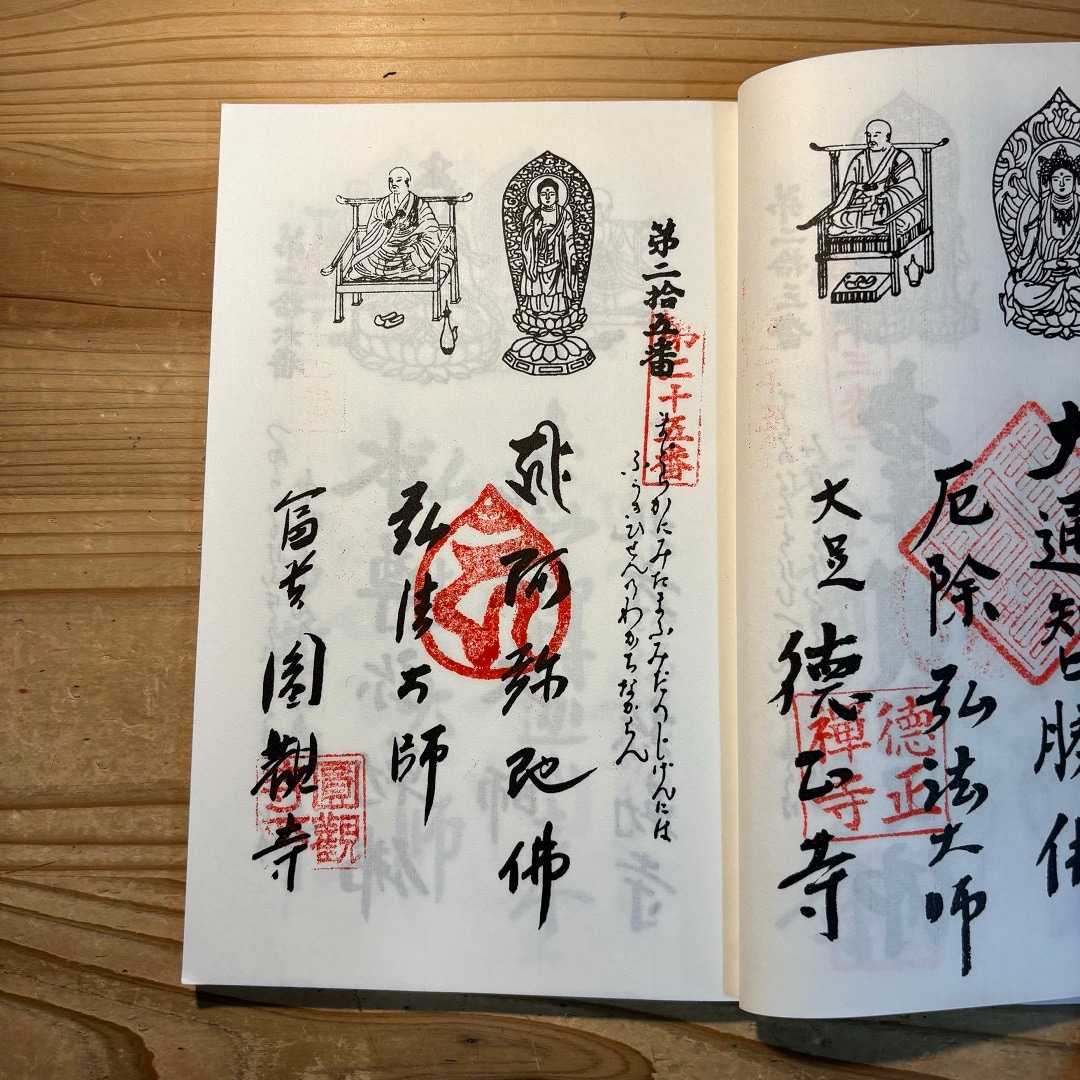 大通智勝佛
厄除 弘法大師
大足 德正寺
德正禪寺
第二拾五番
第二十五番
まどらかにみたまふみだのじげんには
ふうきひせんのわかちなからん
阿弥陀佛
弘法大師
富貴 圓觀寺
圓觀寺